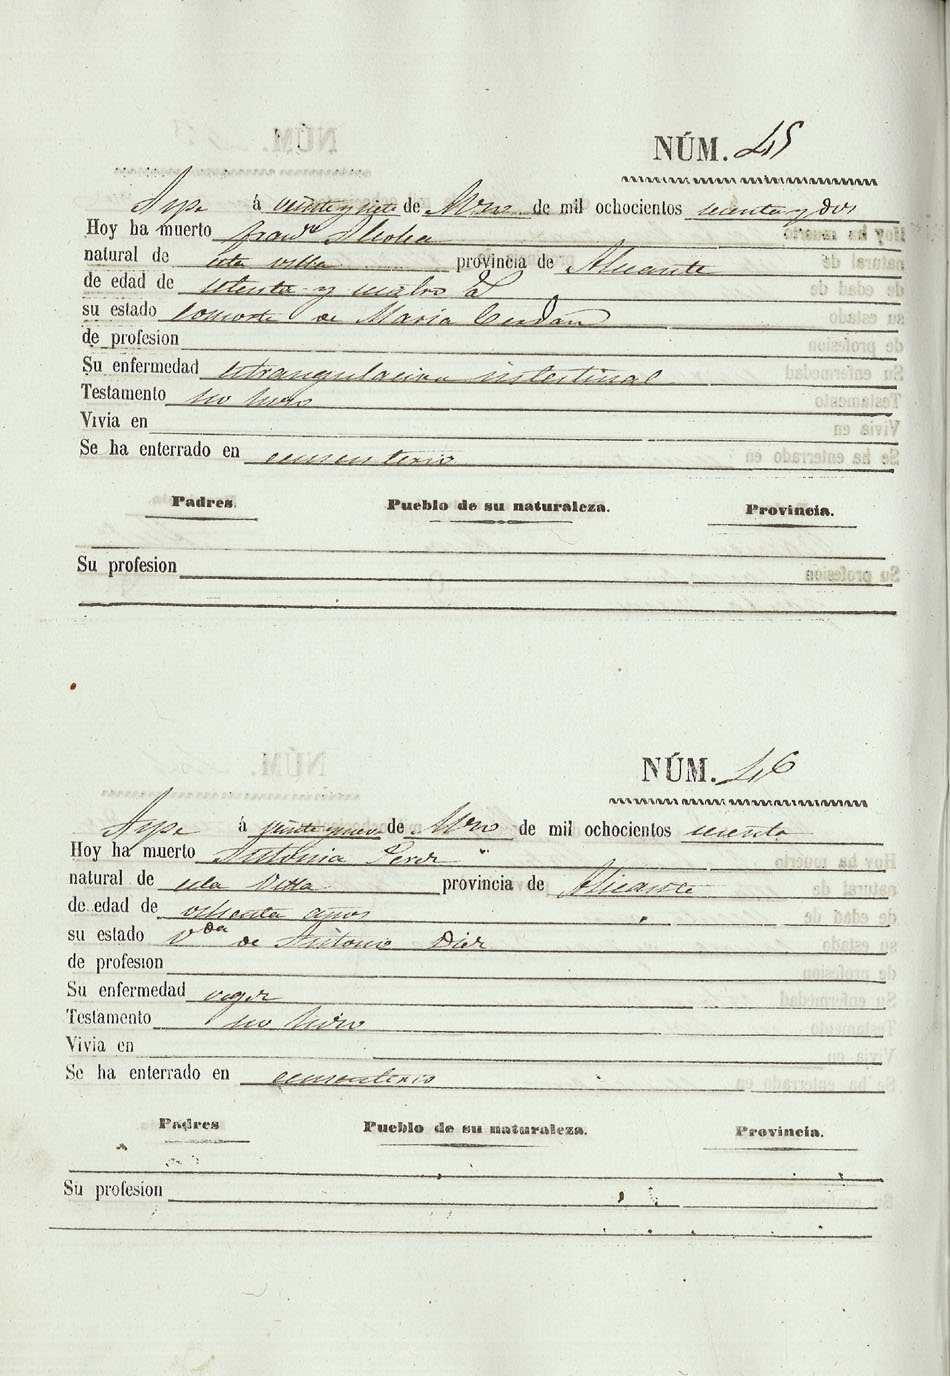 NÚM. 45
Aspe á veinte y siete de Mzo de mil ochocientos sesenta y dos
Hoy ha muerto Franco Alcolea
natural de esta villa provincia de Alicante
de edad de setenta y cuatro
su estado Consorte de Maria Cerdan
de profesion
Su enfermedad estrangulacion intestinal
Testamento no hizo
Vivia en
Se ha enterrado en cementerio
Padres. Pueblo de su naturaleza. Provincia.
Su profesion
NÚM. 46
Aspe á veinte y nueve de Mzo de mil ochocientos sesenta
Hoy ha muerto Antonia Perez
natural de esta villa provincia de Alicante
de edad de ochenta años
su estado Vda de Antonio Diez
de profesion
Su enfermedad vegez
Testamento no hizo
Vivia en
Se ha enterrado en cementerio
Padres Pueblo de su naturaleza. Provincia.
Su profesion